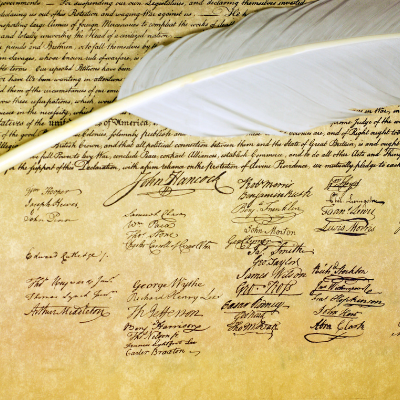 For suspending our own Legislatures, and declaring themselves invested
declaring us out of his Protection and waging War against us. He has
large Armies of foreign Mercenaries to compleat the works of death
and totally unworthy the Head of a civilized nation.
friends and Brethren, or to fall themselves by
whose known rule of warfare, is
terms: Our repeated Petitions have been
have We been wanting in attention
them of the circumstances of our em
these usurpations, which would
in the necessity, which
of the united States of America,
of the good Colonies, solemnly publish and
British Crown, and that all political connection between them and the State of Great Britain, is and ought
full Power to levy War, conclude Peace, contract Alliances, establish Commerce, and to do all other Acts and Things
for the support of this Declaration, with a firm reliance on the Protection of divine Providence, we mutually pledge to each
John Hancock
Wm Hooper
Joseph Hewes
John Penn
Edward Rutledge
Thos Heyward Junr
Thomas Lynch Junr
Arthur Middleton
Samuel Chase
Wm Paca
Thos Stone
Charles Carroll of Carrollton
George Wythe
Richard Henry Lee
Th Jefferson
Benj Harrison
Thos Nelson jr
Francis Lightfoot Lee
Carter Braxton
Robt Morris
Benjamin Rush
Benj Franklin
John Morton
Geo Clymer
Jas Smith
Geo Taylor
James Wilson
Geo Ross
Caesar Rodney
Geo Read
Tho M:Kean
Wm Floyd
Phil Livingston
Frans Lewis
Lewis Morris
Richd Stockton
Jno Witherspoon
Fras Hopkinson
John Hart
Abra Clark